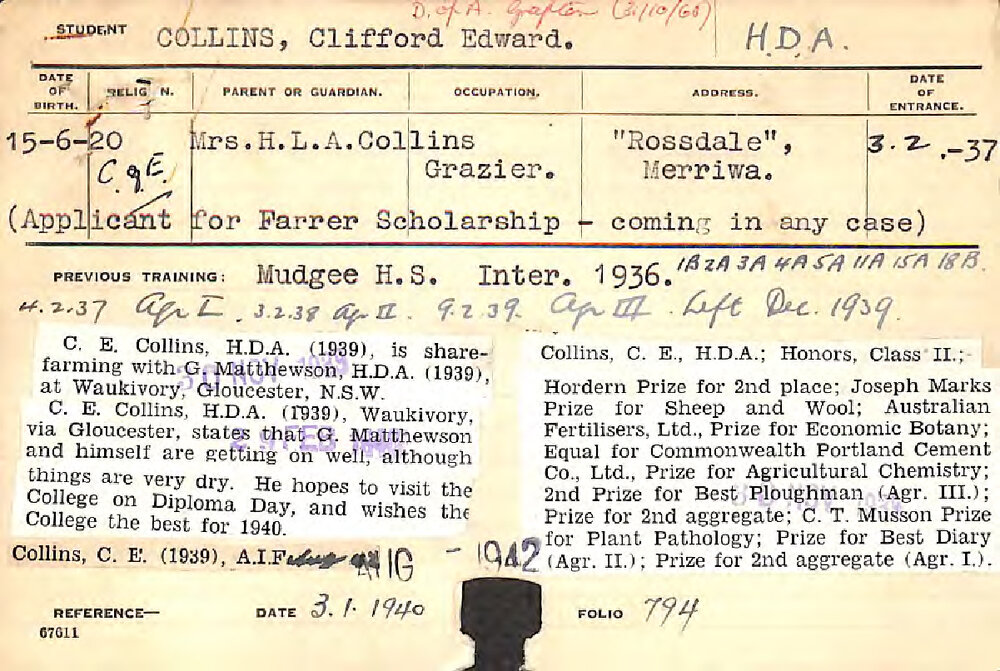 D. of A. Grafton (21/10/60)
STUDENT COLLINS, Clifford Edward. H.D.A.
DATE OF BIRTH. RELIG N. PARENT OR GUARDIAN. OCCUPATION. ADDRESS. DATE OF ENTRANCE.
15-6-20 Mrs.H.L.A.Collins "Rossdale", 3.2.-37
C of E. Grazier. Merriwa.
(Applicant for Farrer Scholarship - coming in any case)
PREVIOUS TRAINING: Mudgee H.S. Inter. 1936. 1B 2A 3A 4A 5A 11A 15A 18B.
4.2.37 Agr I. 3.2.38 Agr II. 9.2.39. Agr III. Left Dec. 1939.
C. E. Collins, H.D.A. (1939), is share-
farming with G. Matthewson, H.D.A. (1939),
at Waukivory, Gloucester, N.S.W.
30 NOV 1939
C. E. Collins, H.D.A. (1939), Waukivory,
via Gloucester, states that G. Matthewson
and himself are getting on well, although
things are very dry. He hopes to visit the
College on Diploma Day, and wishes the
College the best for 1940.
29 FEB
Collins, C. E. (1939), A.I.F. AUG - 1942
Collins, C. E., H.D.A.; Honors, Class II.;
Hordern Prize for 2nd place; Joseph Marks
Prize for Sheep and Wool; Australian
Fertilisers, Ltd., Prize for Economic Botany;
Equal for Commonwealth Portland Cement
Co., Ltd., Prize for Agricultural Chemistry;
2nd Prize for Best Ploughman (Agr. III.);
Prize for 2nd aggregate; C. T. Musson Prize
for Plant Pathology; Prize for Best Diary
(Agr. II.); Prize for 2nd aggregate (Agr. I.).
NOV
REFERENCE— DATE 3.1.1940 FOLIO 794
67611